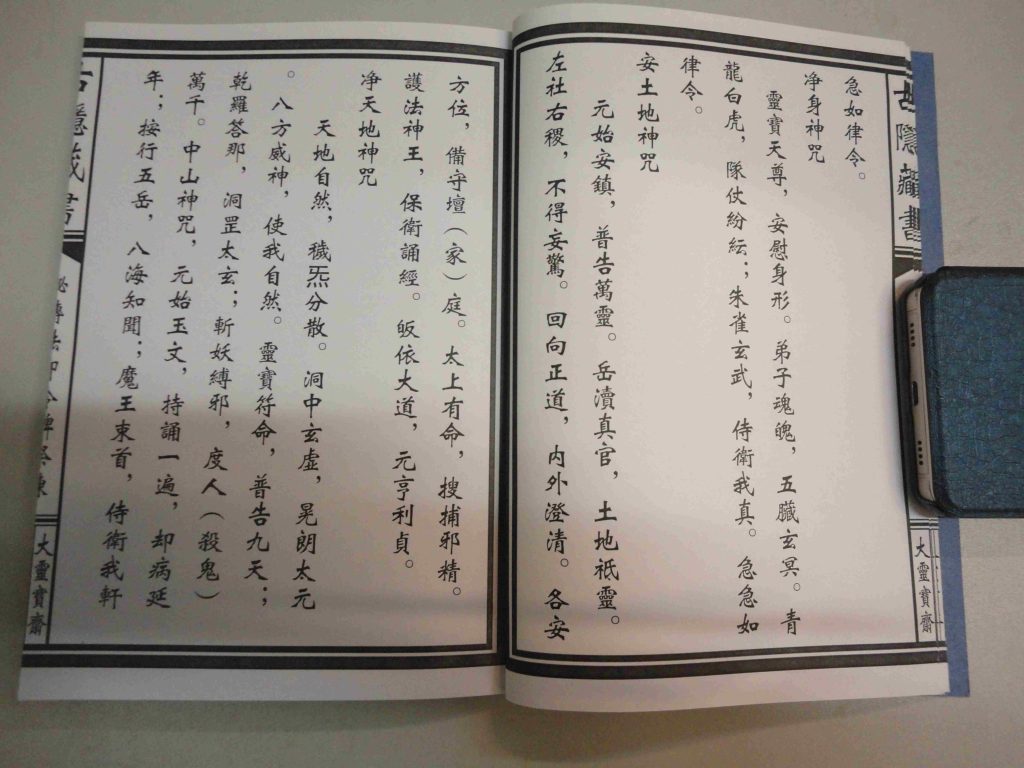 急如律令。
净身神咒
靈寶天尊，安慰身形。弟子魂魄，五臟玄冥。青
龍白虎，隊仗紛紜；朱雀玄武，侍衛我真。急急如
律令。
安土地神咒
元始安鎮，普告萬靈。岳瀆真官，土地祗靈。
左社右稷，不得妄驚。回向正道，内外澄清。各安
方位，備守壇（家）庭。太上有命，搜捕邪精。
護法神王，保衛誦經。皈依大道，元亨利貞。
净天地神咒
天地自然，穢炁分散。洞中玄虛，晃朗太元
。八方威神，使我自然。靈寶符命，普告九天；
乾羅答那，洞罡太玄；斬妖縛邪，度人（殺鬼）
萬千。中山神咒，元始玉文，持誦一遍，却病延
年；按行五岳，八海知聞；魔王束首，侍衛我軒
大靈寶齋
大靈寶齋